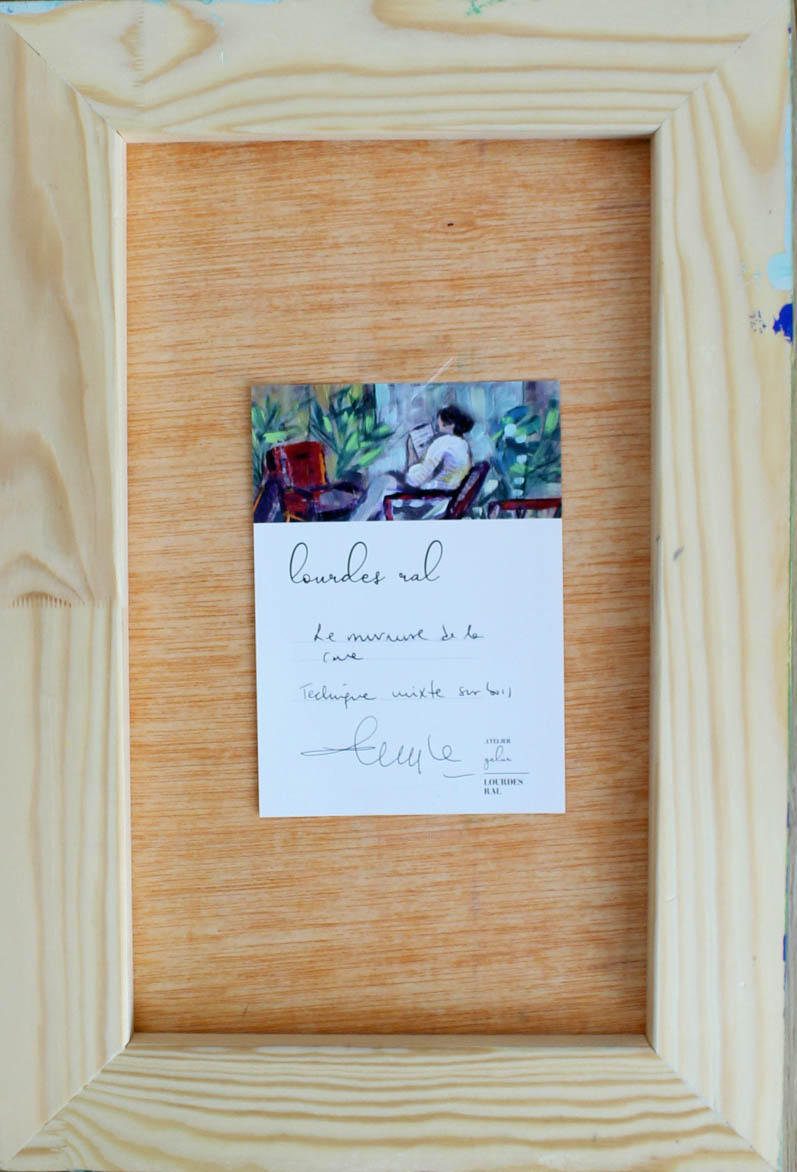 lourdes ral
Le murmure de la
Technique mixte sur bois
ATELIER
LOURDES
RAL